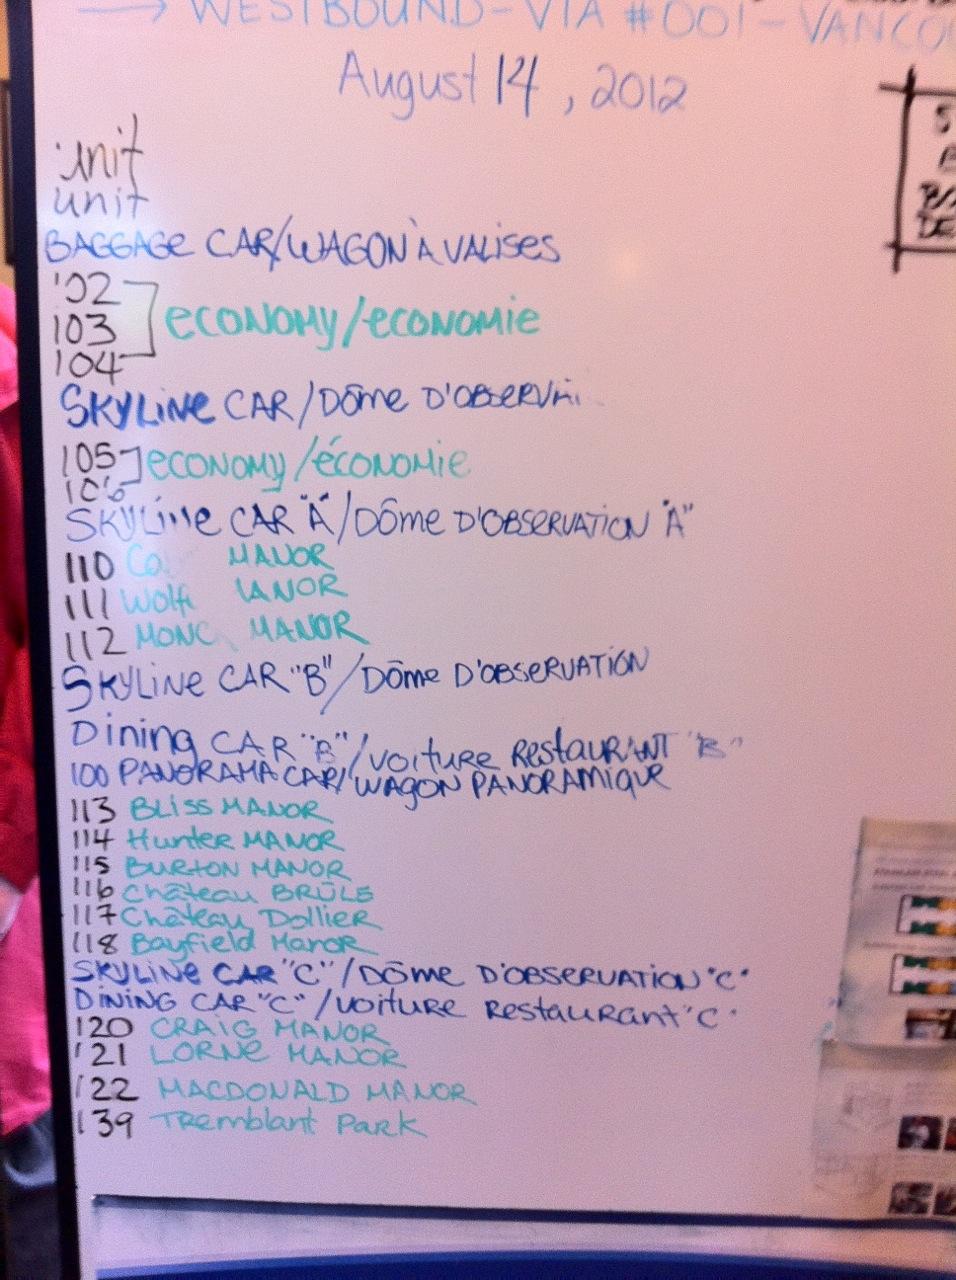 WESTBOUND - VIA #001 - VANCO
August 14, 2012
unit
unit
BAGGAGE CAR/WAGON À VALISES
102
103 economy/economie
104
SKYLINE CAR/DÔME D'OBSERVA
105 economy/économie
106
SKYLINE CAR "A"/DÔME D'OBSERVATION "A"
110 MANOR
111 Wolfe MANOR
112 MONC MANOR
SKYLINE CAR "B"/DÔME D'OBSERVATION
Dining CAR "B"/voiture Restaurant "B"
100 PANORAMA CAR/WAGON PANORAMIQUE
113 BLISS MANOR
114 Hunter MANOR
115 BURTON MANOR
116 Château BRÛLÉ
117 Château Dollier
118 Bayfield Manor
SKYLINE CAR "C"/DÔME D'OBSERVATION "C"
DINING CAR "C"/voiture Restaurant "C"
120 CRAIG MANOR
121 LORNE MANOR
122 MACDONALD MANOR
139 Tremblant Park